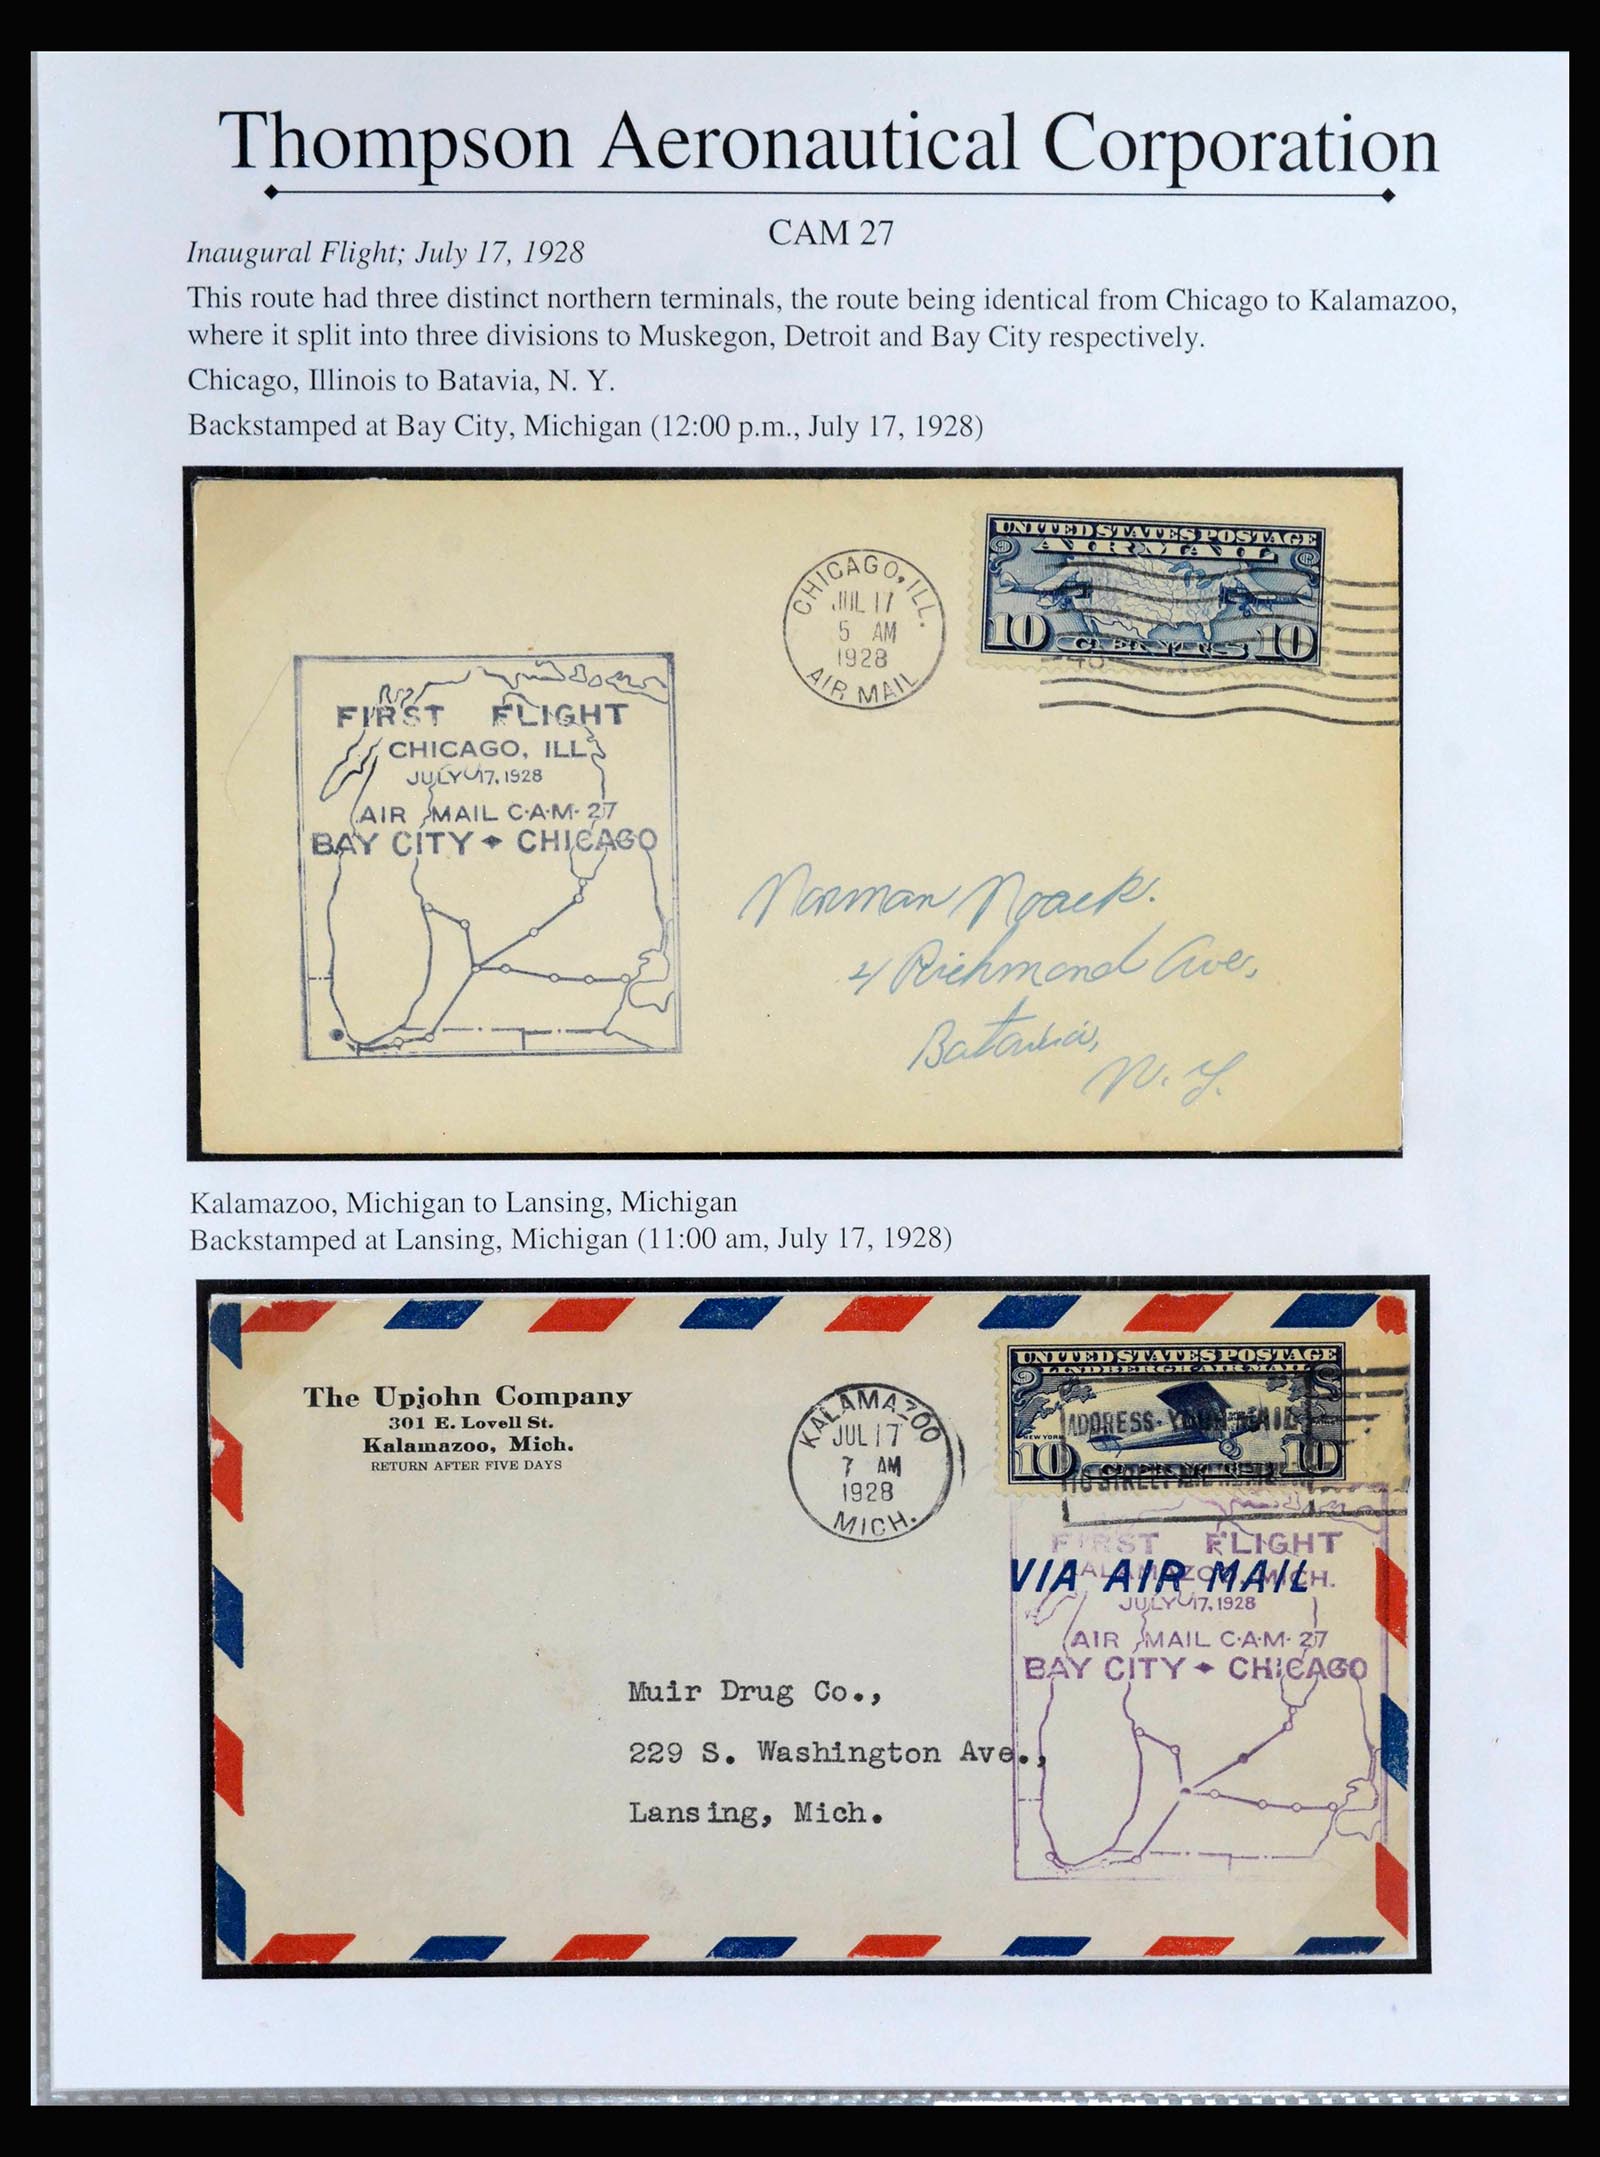 Thompson Aeronautical Corporation
CAM 27
Inaugural Flight; July 17, 1928
This route had three distinct northern terminals, the route being identical from Chicago to Kalamazoo,
where it split into three divisions to Muskegon, Detroit and Bay City respectively.
Chicago, Illinois to Batavia, N. Y.
Backstamped at Bay City, Michigan (12:00 p.m., July 17, 1928)
UNITED STATES POSTAGE
AIR MAIL
10 CENTS 10
CHICAGO, ILL.
JUL 17
5 AM
1928
AIR MAIL
FIRST FLIGHT
CHICAGO, ILL.
JULY 17, 1928
AIR MAIL C·A·M· 27
BAY CITY ✦ CHICAGO
Norman Noack.
21 Richmond Ave,
Batavia,
N. Y.
Kalamazoo, Michigan to Lansing, Michigan
Backstamped at Lansing, Michigan (11:00 am, July 17, 1928)
The Upjohn Company
301 E. Lovell St.
Kalamazoo, Mich.
RETURN AFTER FIVE DAYS
KALAMAZOO
JUL 17
7 AM
1928
MICH.
UNITED STATES POSTAGE
LINDBERGH AIR MAIL
NEW YORK
ADDRESS YOUR MAIL
10 10
TO STREET AND NUMBER
FIRST FLIGHT
KALAMAZOO, MICH.
VIA AIR MAIL
JULY 17, 1928
AIR MAIL C·A·M· 27
BAY CITY ✦ CHICAGO
Muir Drug Co.,
229 S. Washington Ave.,
Lansing, Mich.